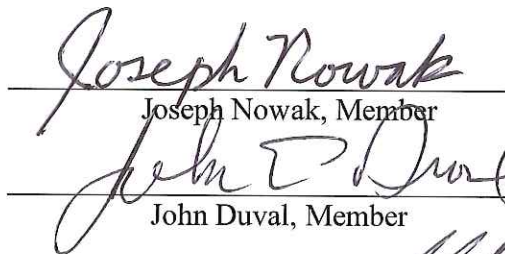 Joseph Nowak
Joseph Nowak, Member
John
John Duval, Member